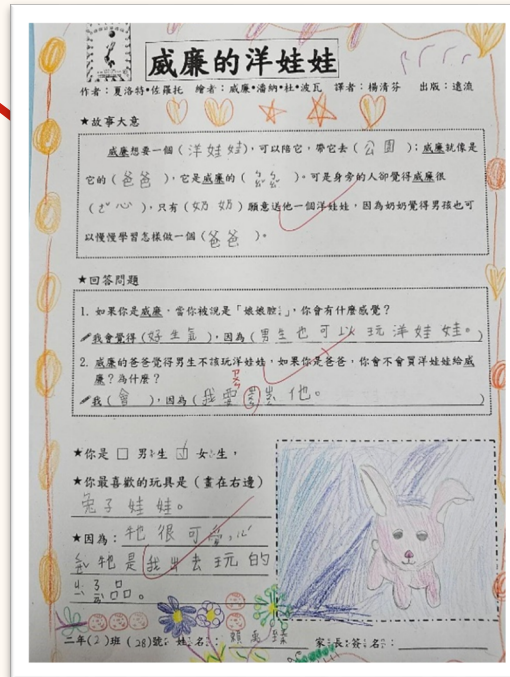 威廉的洋娃娃
作者：夏洛特•佐羅托　繪者：威廉•潘納•杜•波瓦　譯者：楊清芬　出版：遠流
★故事大意
威廉想要一個（洋娃娃），可以陪它，帶它去（公園）；威廉就像是
它的（爸爸），它是威廉的（ㄅㄠˇㄅㄠˇ）。可是身旁的人卻覺得威廉很
（ 心），只有（奶奶）願意送他一個洋娃娃，因為奶奶覺得男孩也可
以慢慢學習怎樣做一個（爸爸）。
★回答問題
1. 如果你是威廉，當你被說是「娘娘腔」，你會有什麼感覺？
我會覺得（好生氣），因為（男生也可以玩洋娃娃。）
2. 威廉的爸爸覺得男生不該玩洋娃娃，如果你是爸爸，你會不會買洋娃娃給威
廉？為什麼？
我（會），因為（我愛 他。）
★你是 □ 男生 □ 女生，
★你最喜歡的玩具是（畫在右邊）
兔子娃娃。
★因為：牠很可愛，
牠是我出去玩的
品。
二年(2)班 (28)號 姓名： 家長簽名：